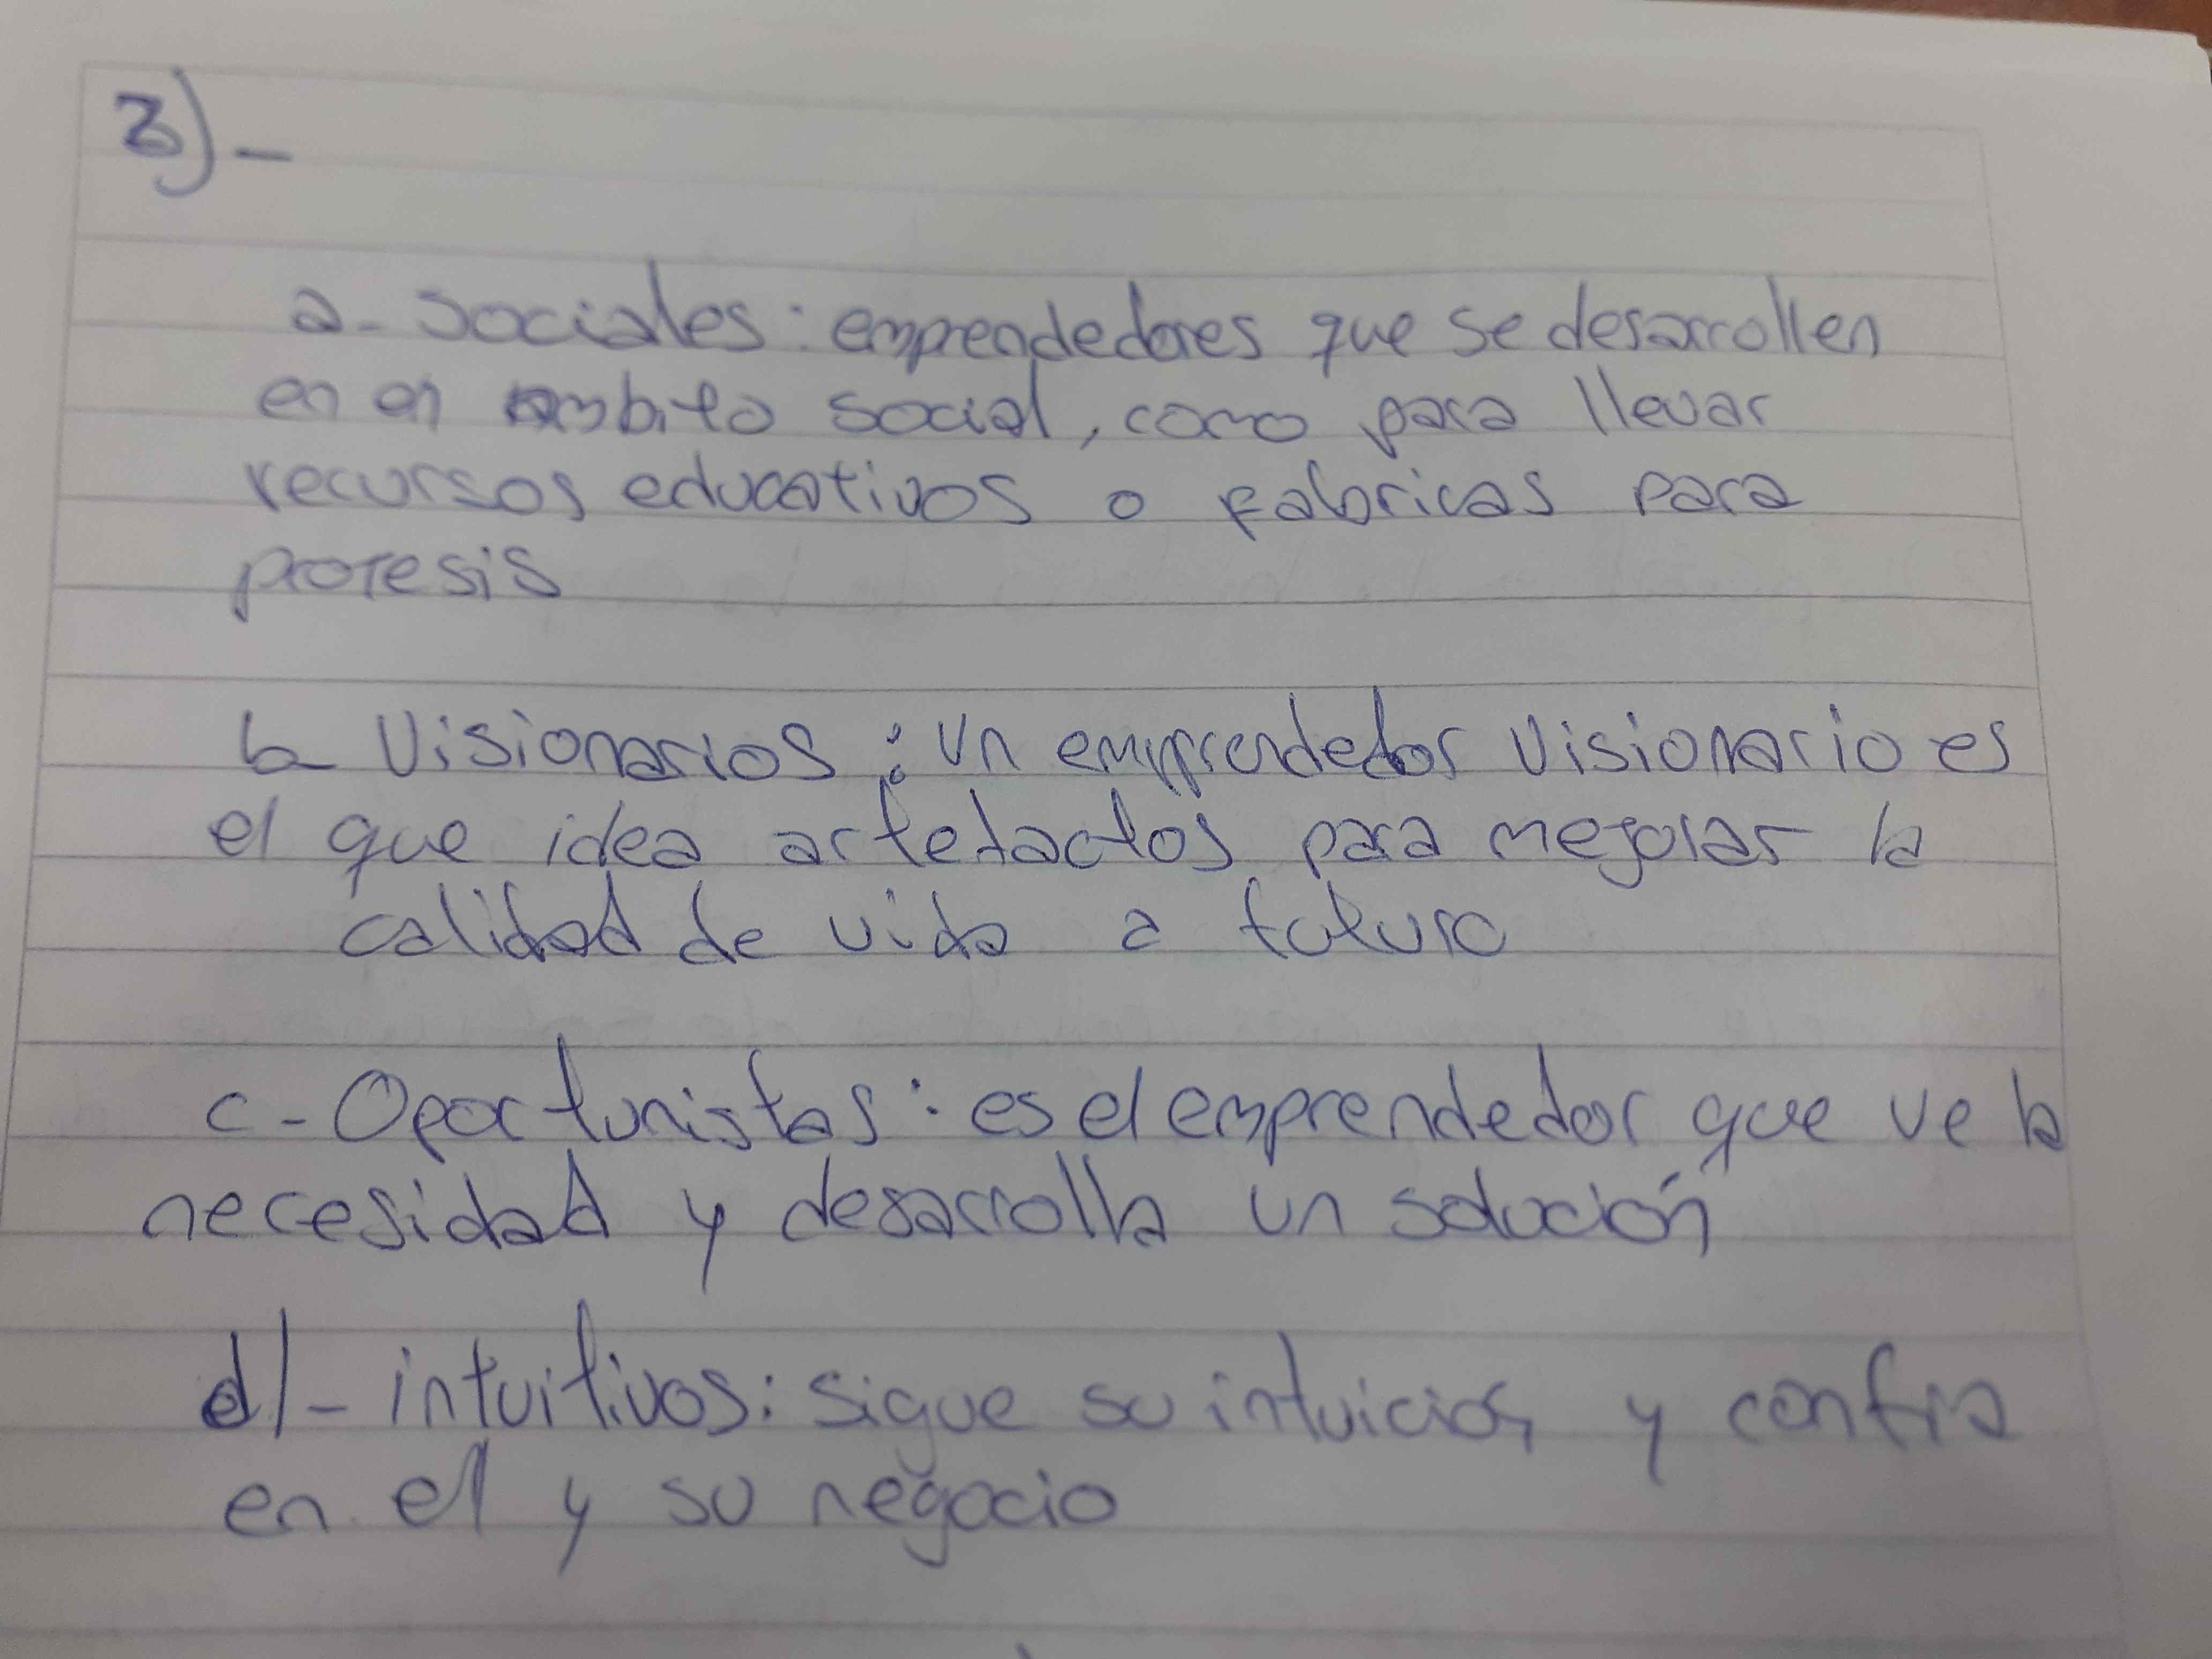 3)-
a- Sociales: emprendedores que se desarrollen
en en ambito social, como para llevar
recursos educativos o Fabricas para
protesis
b- Visionarios: Un emprendedor visionario es
el que idea artefactos para mejorar la
calidad de vida a futuro
c- Oportunistas: es el emprendedor que ve la
necesidad y desarrolla un solución
d)- intuitivos: sigue su intuición y confia
en el y su negocio